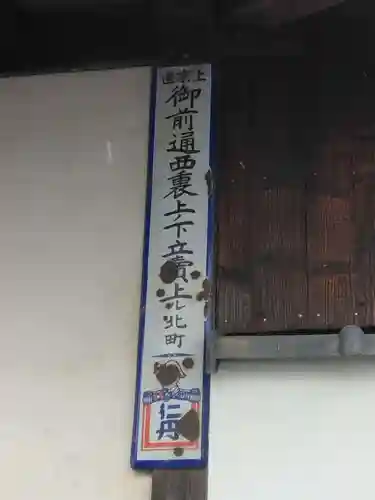 上京區
御前通西裏上ノ下立賣上ル北町
仁丹